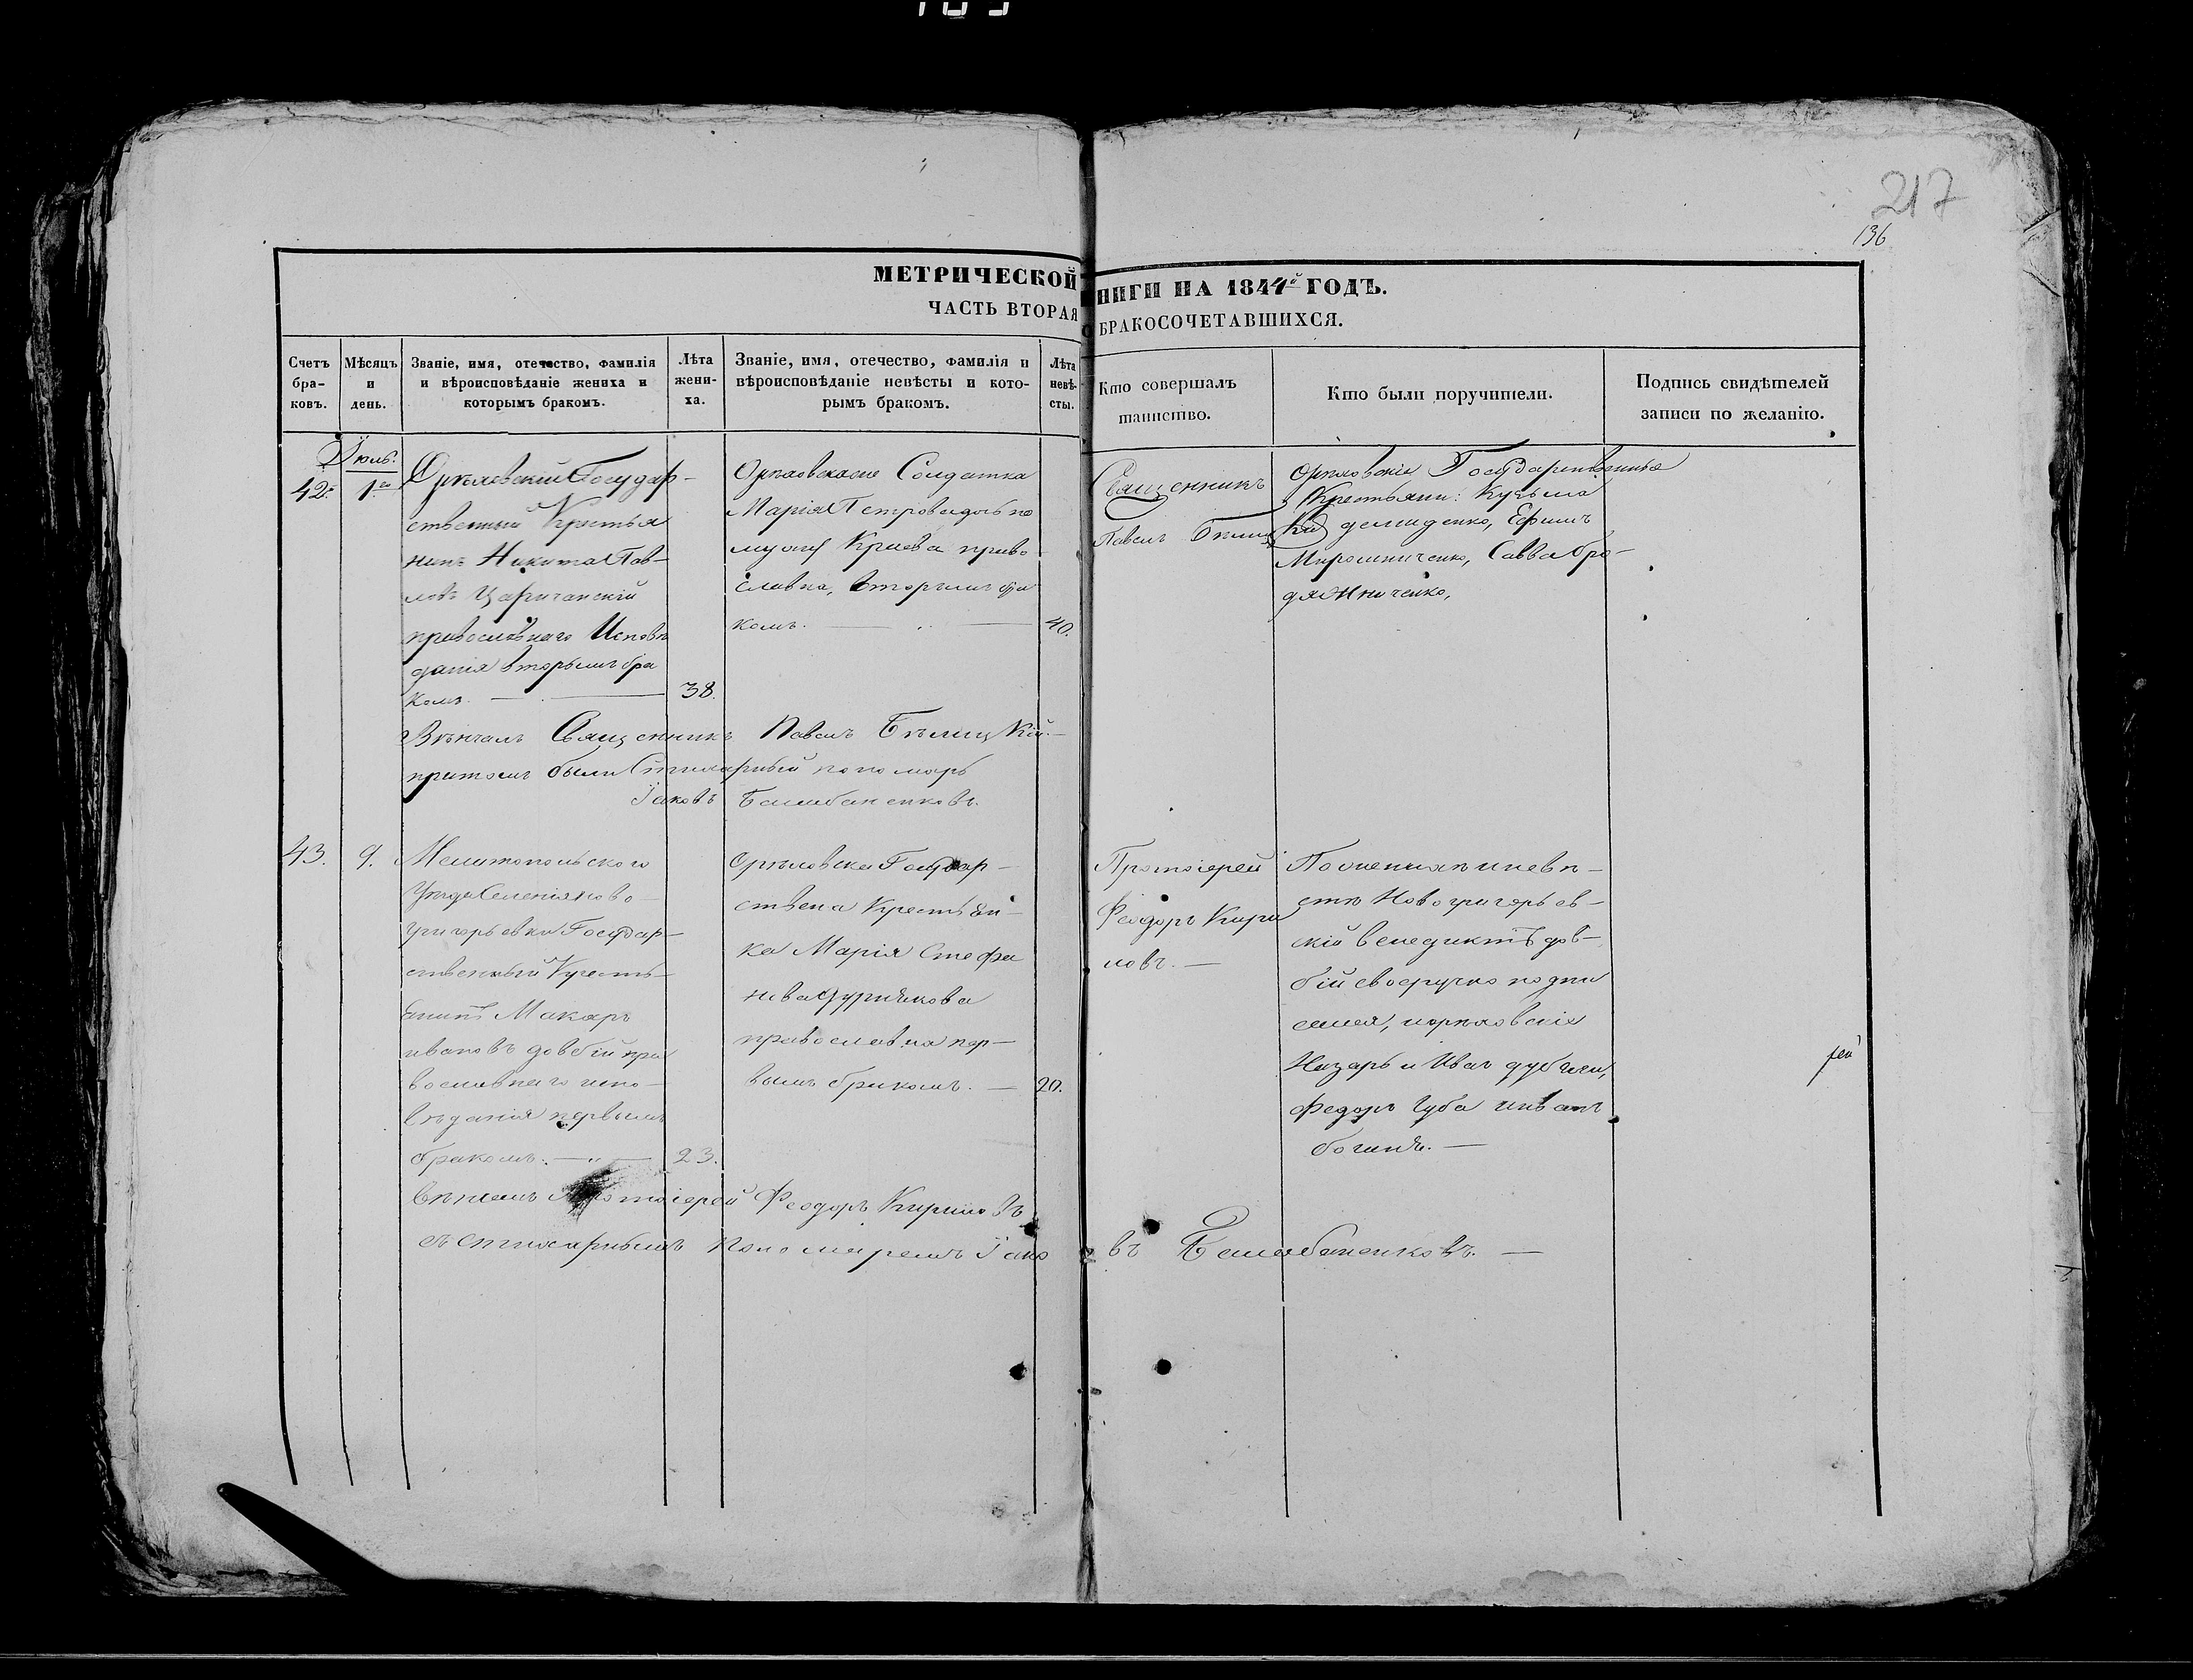 217
136
МЕТРИЧЕСКОЙ НИГИ НА 1844й ГОДЪ.
ЧАСТЬ ВТОРАЯ О БРАКОСОЧЕТАВШИХСЯ.
Счетъ бра- ковъ.
Мѣсяцъ и день.
Званіе, имя, отечество, фамилія и вѣроисповѣданіе жениха и которымъ бракомъ.
Лѣта жени- ха.
Званіе, имя, отечество, фамилія и вѣроисповѣданіе невѣсты и кото- рымъ бракомъ.
Лѣта невѣ- сты.
Кто совершалъ таинство.
Кто были поручители.
Подпись свидѣтелей записи по желанію.
Іюль.
42.
1го
Орѣховскій Государ-
ственный Крестья
нинъ Никита Пав-
ловъ Царичанскій
православнаго Исповѣ
данія вторымъ бра
комъ.
38.
Солдатка
Марія Петрова дочь по
мужу Криева право
славна, вторымъ бра
комъ.
40.
Священникъ
Павелъ Бѣлицкій
Орѣховскіе Государственные
Крестьяни: Кузьма
демиденко, Ефимъ
Мирошниченко, Савва бро-
дяниченко,
Вѣнчалъ Священникъ Павелъ Бѣлицкій.
притомъ были Стихарный пономарь
Іаковъ Балабаненковъ.
43.
9.
Мелитопольского
Уѣзда Селенія ново-
григорьевки Государ-
ственный Кресть-
янинъ Макаръ
ивановъ довбій пра
вославнаго испо-
вѣданія первымъ
бракомъ.
23.
Орѣховска Государ-
ствена Крестьян-
ка Марія Стефа
нова Дурнякова
православная пер-
вымъ бракомъ.
20.
Протоіерей
Феодоръ Кири
ловъ.
По женихѣ и невѣ-
стѣ Новогригорьев-
скій венедиктъ дов-
бій своеручно подпи
сался, иорѣховскіе
Назарь и Иванъ
Федоръ Губа иванъ
Вѣнчалъ Протоіерей Феодоръ Кириловъ
съ стихарнымъ Пономаремъ Іаковъ Балабаненковъ.